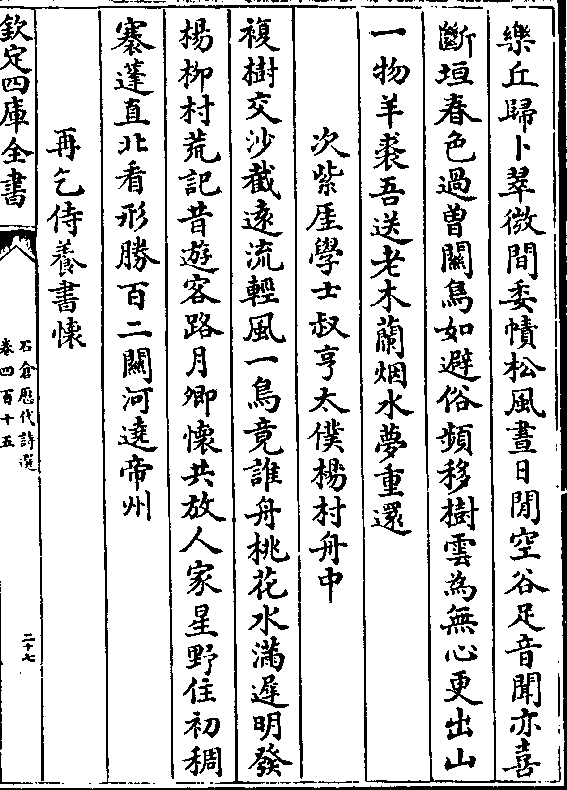 樂丘歸卜翠微間委幘松風晝日閒空谷足音聞亦喜
斷垣春色過曽關鳥如避俗頻移樹雲為無心更出山
一物羊裘吾送老木蘭烟水夢重還
次紫厓學士叔亨太僕楊村舟中
複樹交沙截逺流輕風一鳥竟誰舟桃花水滿遲明發
楊柳村荒記昔遊客路月卿懐共放人家星野住初稠
褰蓬直北看形勝百二關河遶帝州
再乞侍養書懐
欽定四庫全書
石倉歴代詩選
卷四百十五
二十七